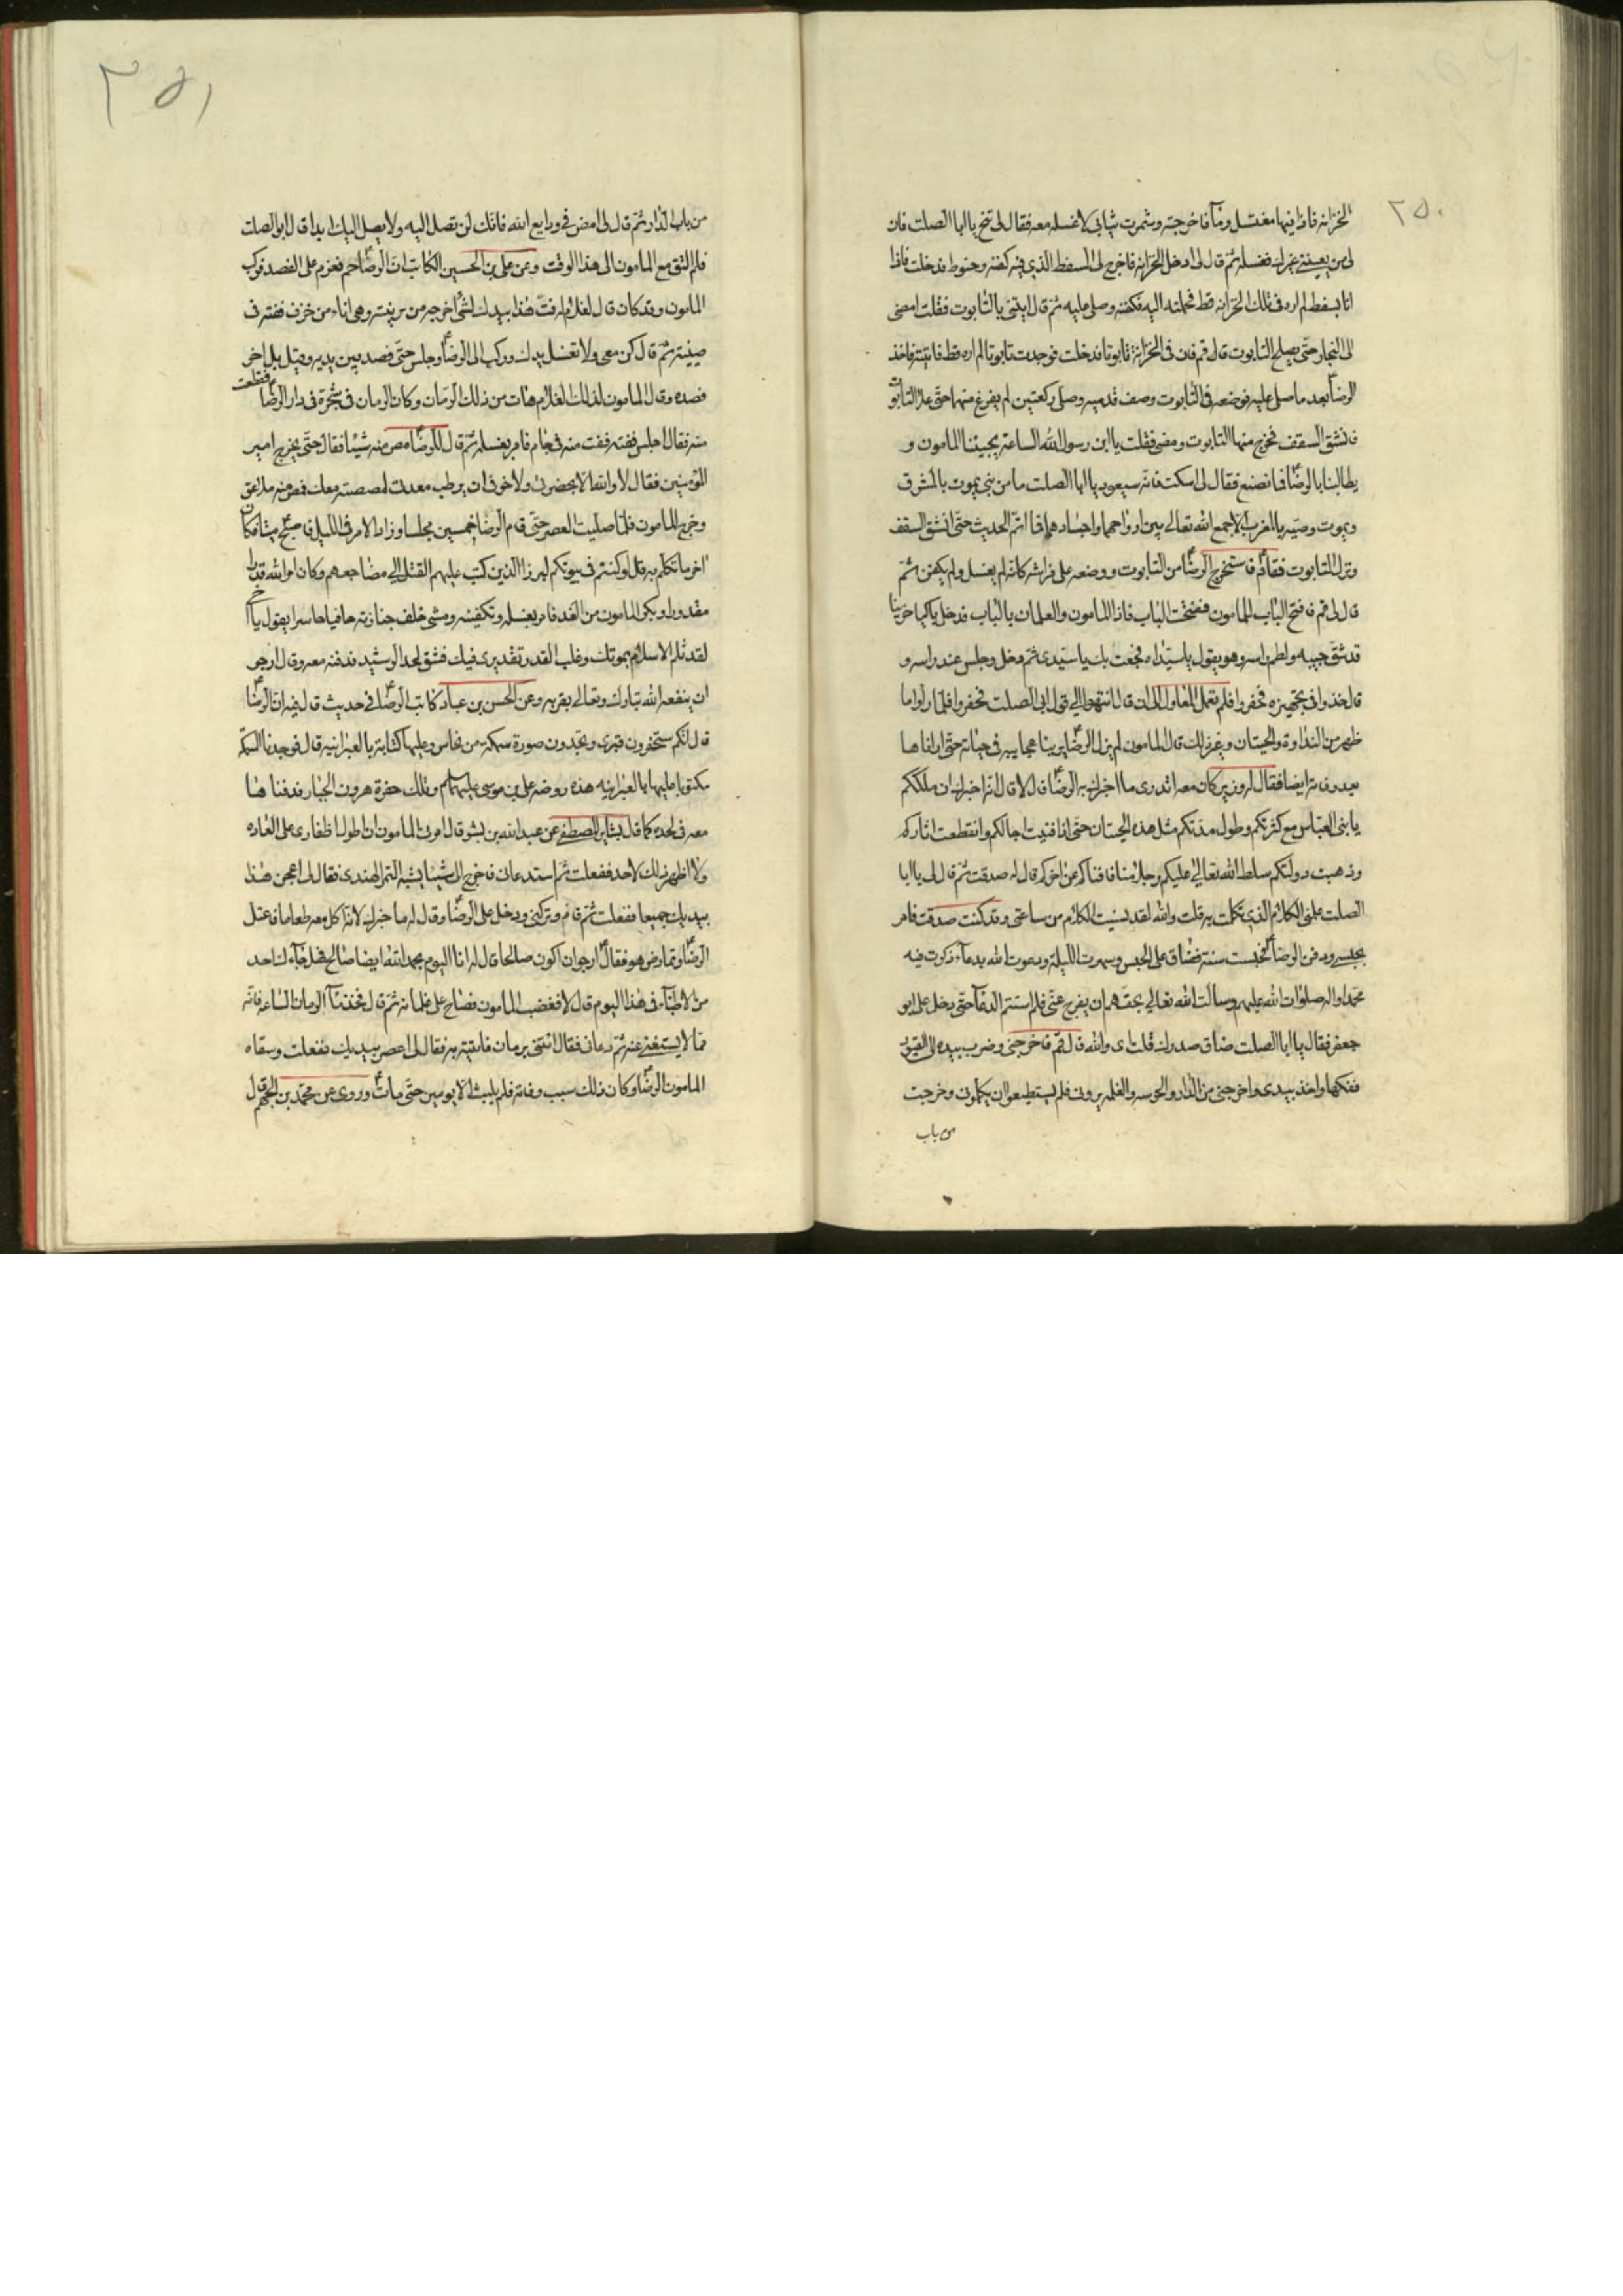 ٢٥٠
الخزانة فاذا فيها مغتسل وماء فاخرجته وشمرت ثيابى لاغسله معه فقال لى تنح يا ابا الصلت فان
لى من يعيننى غيرك فغسله ثم قال لى ادخل الخزانة فاخرج لى السفط الذى فيه كفنه وحنوطه فدخلت فاذا
انا بسفط لم اره فى تلك الخزانه قط فحملته اليه فكفنه وصلى عليه ثم قال ايتنى بالتابوت فقلت امضى
الى النجار حتى يصلح التابوت قال قم فان فى الخزانة تابوتا فدخلت فوجدت تابوتا لم اره قط فاتيته فاخذ
الرضا بعد ما صلى عليه فوضعه فى التابوت وصف قدميه وصلى ركعتين لم يفرغ منهما حتى علا التابوت
فانشق السقف فخرج منها التابوت ومضى فقلت يا ابن رسول الله الساعة يجيئنا المامون و
يطالبنا بالرضا فما نصنع فقال لى اسكت فانه سيعود يا ابا الصلت ما من نبى يموت بالمشرق
ويموت وصيه بالمغرب الا جمع الله تعالى بين ارواحهما واجسادهما فما اتم الحديث حتى انشق السقف
ونزل التابوت فقام فاستخرج الرضا من التابوت ووضعه على فراشه كانه لم يغسل ولم يكفن ثم
قال لى قم فافتح الباب للمامون ففتحت الباب فاذا المامون والغلمان بالباب فدخل باكيا حزينا
قد شق جيبه ولطم راسه وهو يقول يا سيداه فجعت بك يا سيدى ثم دخل وجلس عند راسه و
قال خذوا فى تجهيزه فحفروا فلم تعمل المعاول الى ان قال انتهوا الى قول ابى الصلت فحفروا فلما راوا ما
ظهر من النداوة والحيتان وغير ذلك قال المامون لم يزل الرضا يرينا عجايبه فى حياته حتى اراناها
بعد وفاته ايضا فقال له وزير كان معه اتدرى ما اخبرك به الرضا قال لا قال انه اخبرك ان ملككم
يا بنى العباس مع كثرتكم وطول مدتكم مثل هذه الحيتان حتى اذا فنيت اجالكم وانقطعت اثاركم
وذهبت دولتكم سلط الله تعالى عليكم رجلا منا فافناكم عن اخركم قال له صدقت ثم قال لى يا ابا
الصلت علمنى الكلام الذى تكلمت به قلت والله لقد نسيت الكلام من ساعتى وقد كنت صدقت فامر
بحبسى ودفن الرضا فحبست سنة فضاق على الحبس وسهرت الليلة ودعوت الله بدعاء ذكرت فيه
محمدا واله صلوات الله عليهم وسالت الله تعالى بحقهم ان يفرج عنى فلم استتم الدعاء حتى دخل على ابو
جعفر فقال يا ابا الصلت ضاق صدرك قلت اى والله قال قم فاخرجنى وضرب بيده الى القيود
ففكها واخذ بيدى واخرجنى من الدار والحرسه والغلمه يرونى فلم يستطيعوا ان يكلمونى وخرجت
من باب
٢٥١
من باب الدار ثم قال لى امض فى ودايع الله فانك لن تصل اليه ولا يصل اليك ابدا قال ابو الصلت
فلم التق مع المامون الى هذا الوقت وعن على بن الحسين الكاتب ان الرضا حم فعزم على الفصد فركب
المامون وقد كان قال لغلام له فت هذا بيدك لشئ اخرجه من برنيته وهى اناء من خزف ففته فى
صينية ثم قال كن معى ولا تغسل يدك وركب الى الرضا وجلس حتى فصد بين يديه وقيل بل اخر
فصده وقال المامون لذلك الغلام هات من ذلك الرمان وكان الرمان فى شجرة فى دار الرضا فقطعت
منه فقال اجلس ففته ففت منه فى جام فامر بغسله ثم قال للرضا مص منه شيئا فقال حتى يخرج امير
المؤمنين فقال لا والله الا بحضرتى ولا خوفى ان يرطب معدتى لمصصته معك فمص منه ملاعق
وخرج المامون فلما صليت العصر حتى قام الرضا خمسين مجلسا وزاد الامر فى الليل فاصبح ميتا فكان
اخر ما تكلم به قل لو كنتم فى بيوتكم لبرز الذين كتب عليهم القتل الى مضاجعهم وكان امر الله قدرا
مقدورا وبكر المامون من الغد فامر بغسله وتكفينه ومشى خلف جنازته حافيا حاسرا يقول يا اخى
لقد ثلم الاسلام بموتك وغلب القدر تقديرى فيك فشق لحد الرشيد فدفنه معه وقال ارجو
ان ينفعه الله تبارك وتعالى بقربه وعن الحسن بن عباد كاتب الرضا فى حديث قال فيه ان الرضا
قال انكم ستحفرون قبرى وتجدون صورة سمكة من نحاس وعليها كتابة بالعبرانية قال فوجدنا السمكة
مكتوبا عليها بالعبرانيه هذه روضه على بن موسى عليهما السلام وتلك حفرة هرون الجبار فدفنا هنا
معه فى لحده كما قال بشاير المصطفى عن عبد الله بن بشر قال امرنى المامون ان اطول اظفارى على العاده
ولا اظهر ذلك لاحد ففعلت ثم استدعانى فاخرج الى شيئا يشبه التمر الهندى فقال لى اعجن هذا
بيديك جميعا ففعلت ثم قام وتركنى ودخل على الرضا وقال له ما خبرك لانه اكل معه طعاما فاعتل
الرضا وتمارض هو فقال ارجو ان اكون صالحا قال له انا اليوم بحمد الله ايضا صالح فهل جاءك احد
من الاطباء فى هذا اليوم قال لا فغضب المامون فصاح على غلمانه ثم قال فخذ ماء الرمان الساعة فانه
مما لا يستغنى عنه ثم دعانى فقال ائتنى برمان فاتيته به فقال لى اعصر بيديك ففعلت وسقاه
المامون الرضا وكان ذلك سبب وفاته فلم يلبث الا يومين حتى مات وروى عن محمد بن الجهم قال